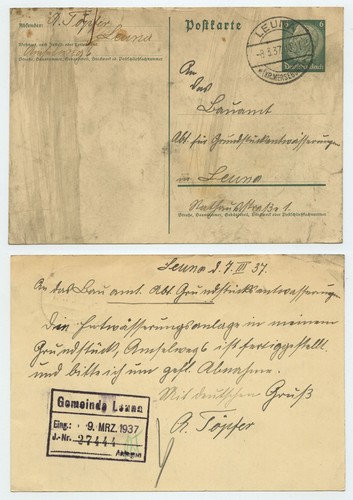 Absender: A. Töpfer
Leuna
Wohnort, auch Zustell- oder Leitpostamt
Amselweg 6
Straße, Hausnummer, Gebäudeteil, Stockwerk od. Postschließfachnummer
Postkarte
LEUNA
-8.3.37
(KR. MERSEBURG)
6
Deutsches Reich
An
das
Bauamt
Abt. für Grundstücksentwässerungen
in Leuna
Rathausstraße 1.
Straße, Hausnummer, Gebäudeteil, Stockwerk od. Postschließfachnummer
Leuna d. 7. III 37.
An das Bauamt. Abt. Grundstücksentwässerungen
Die Entwässerungsanlage in meinem
Grundstück, Amselweg 6 ist fertiggestellt
und bitte ich um gefl. Abnahme.
Mit deutschem Gruß
A. Töpfer
Gemeinde Leuna
Eing.: 9. MRZ. 1937
J.-Nr. 37444
Anlagen